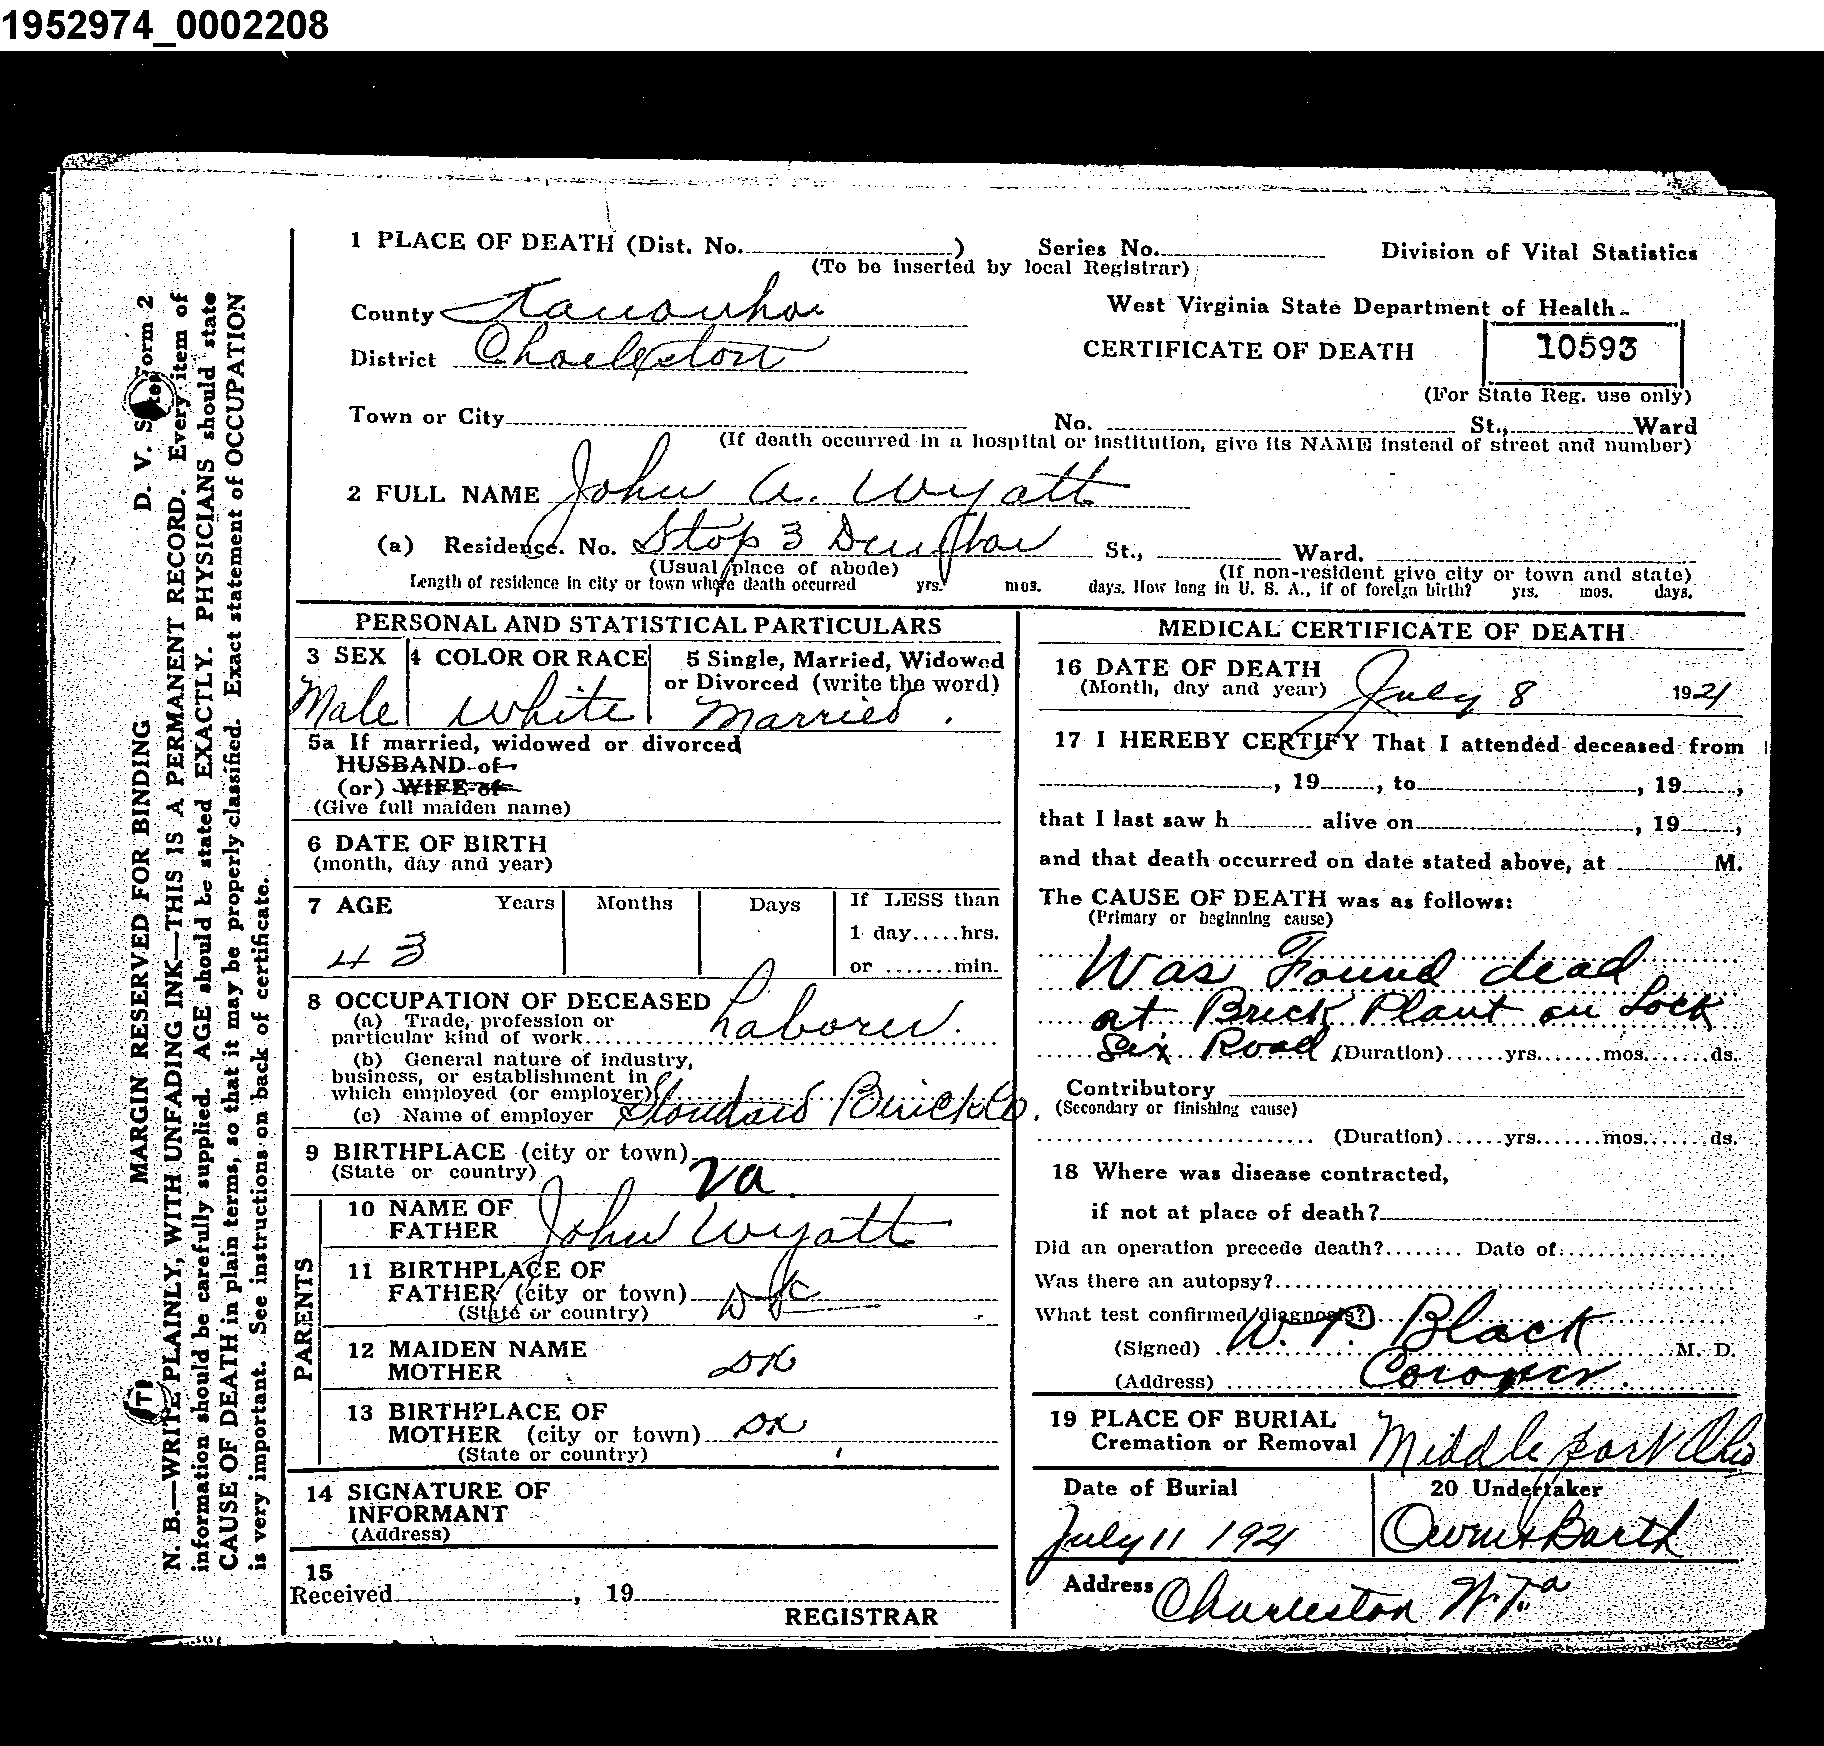 1952974_0002208
1 PLACE OF DEATH (Dist. No. ) Series No. Division of Vital Statistics
(To be inserted by local Registrar)
County Kanawha West Virginia State Department of Health
District Charleston CERTIFICATE OF DEATH 10593
(For State Reg. use only)
Town or City No. St., Ward
(If death occurred in a hospital or institution, give its NAME instead of street and number)
2 FULL NAME John A. Wyatt
(a) Residence. No. Stop 3 Dunbar St., Ward.
(Usual place of abode) (If non-resident give city or town and state)
Length of residence in city or town where death occurred yrs. mos. days. How long in U. S. A., if of foreign birth? yrs. mos. days.
PERSONAL AND STATISTICAL PARTICULARS
3 SEX 4 COLOR OR RACE 5 Single, Married, Widowed
or Divorced (write the word)
Male White Married
5a If married, widowed or divorced
HUSBAND of
(or) WIFE of
(Give full maiden name)
6 DATE OF BIRTH
(month, day and year)
7 AGE Years Months Days If LESS than
1 day.....hrs.
43 or .......min.
8 OCCUPATION OF DECEASED
(a) Trade, profession or
particular kind of work Laborer.
(b) General nature of industry,
business, or establishment in
which employed (or employer)
(c) Name of employer Standard Brick Co.
9 BIRTHPLACE (city or town)
(State or country) Va.
PARENTS
10 NAME OF
FATHER John Wyatt
11 BIRTHPLACE OF
FATHER (city or town) DK
(State or country)
12 MAIDEN NAME
MOTHER DK
13 BIRTHPLACE OF
MOTHER (city or town) DK
(State or country)
14 SIGNATURE OF
INFORMANT
(Address)
15
Received , 19
REGISTRAR
MEDICAL CERTIFICATE OF DEATH
16 DATE OF DEATH
(Month, day and year) July 8 1921
17 I HEREBY CERTIFY That I attended deceased from
, 19 , to , 19 ,
that I last saw h alive on , 19 ,
and that death occurred on date stated above, at M.
The CAUSE OF DEATH was as follows:
(Primary or beginning cause)
Was Found dead
at Brick Plant on Lock
Six Road (Duration)......yrs.......mos.......ds.
Contributory
(Secondary or finishing cause)
(Duration)......yrs.......mos.......ds.
18 Where was disease contracted,
if not at place of death?
Did an operation precede death?........ Date of:
Was there an autopsy?
What test confirmed diagnosis?
(Signed) W. P. Black M. D.
(Address) Coroner.
19 PLACE OF BURIAL
Cremation or Removal Middleport Ohio
Date of Burial 20 Undertaker
July 11 1921 Owens & Barth
Address Charleston W. Va
D. V. S. Form 2
MARGIN RESERVED FOR BINDING
N. B.—WRITE PLAINLY, WITH UNFADING INK—THIS IS A PERMANENT RECORD. Every item of
information should be carefully supplied. AGE should be stated EXACTLY. PHYSICIANS should state
CAUSE OF DEATH in plain terms, so that it may be properly classified. Exact statement of OCCUPATION
is very important. See instructions on back of certificate.